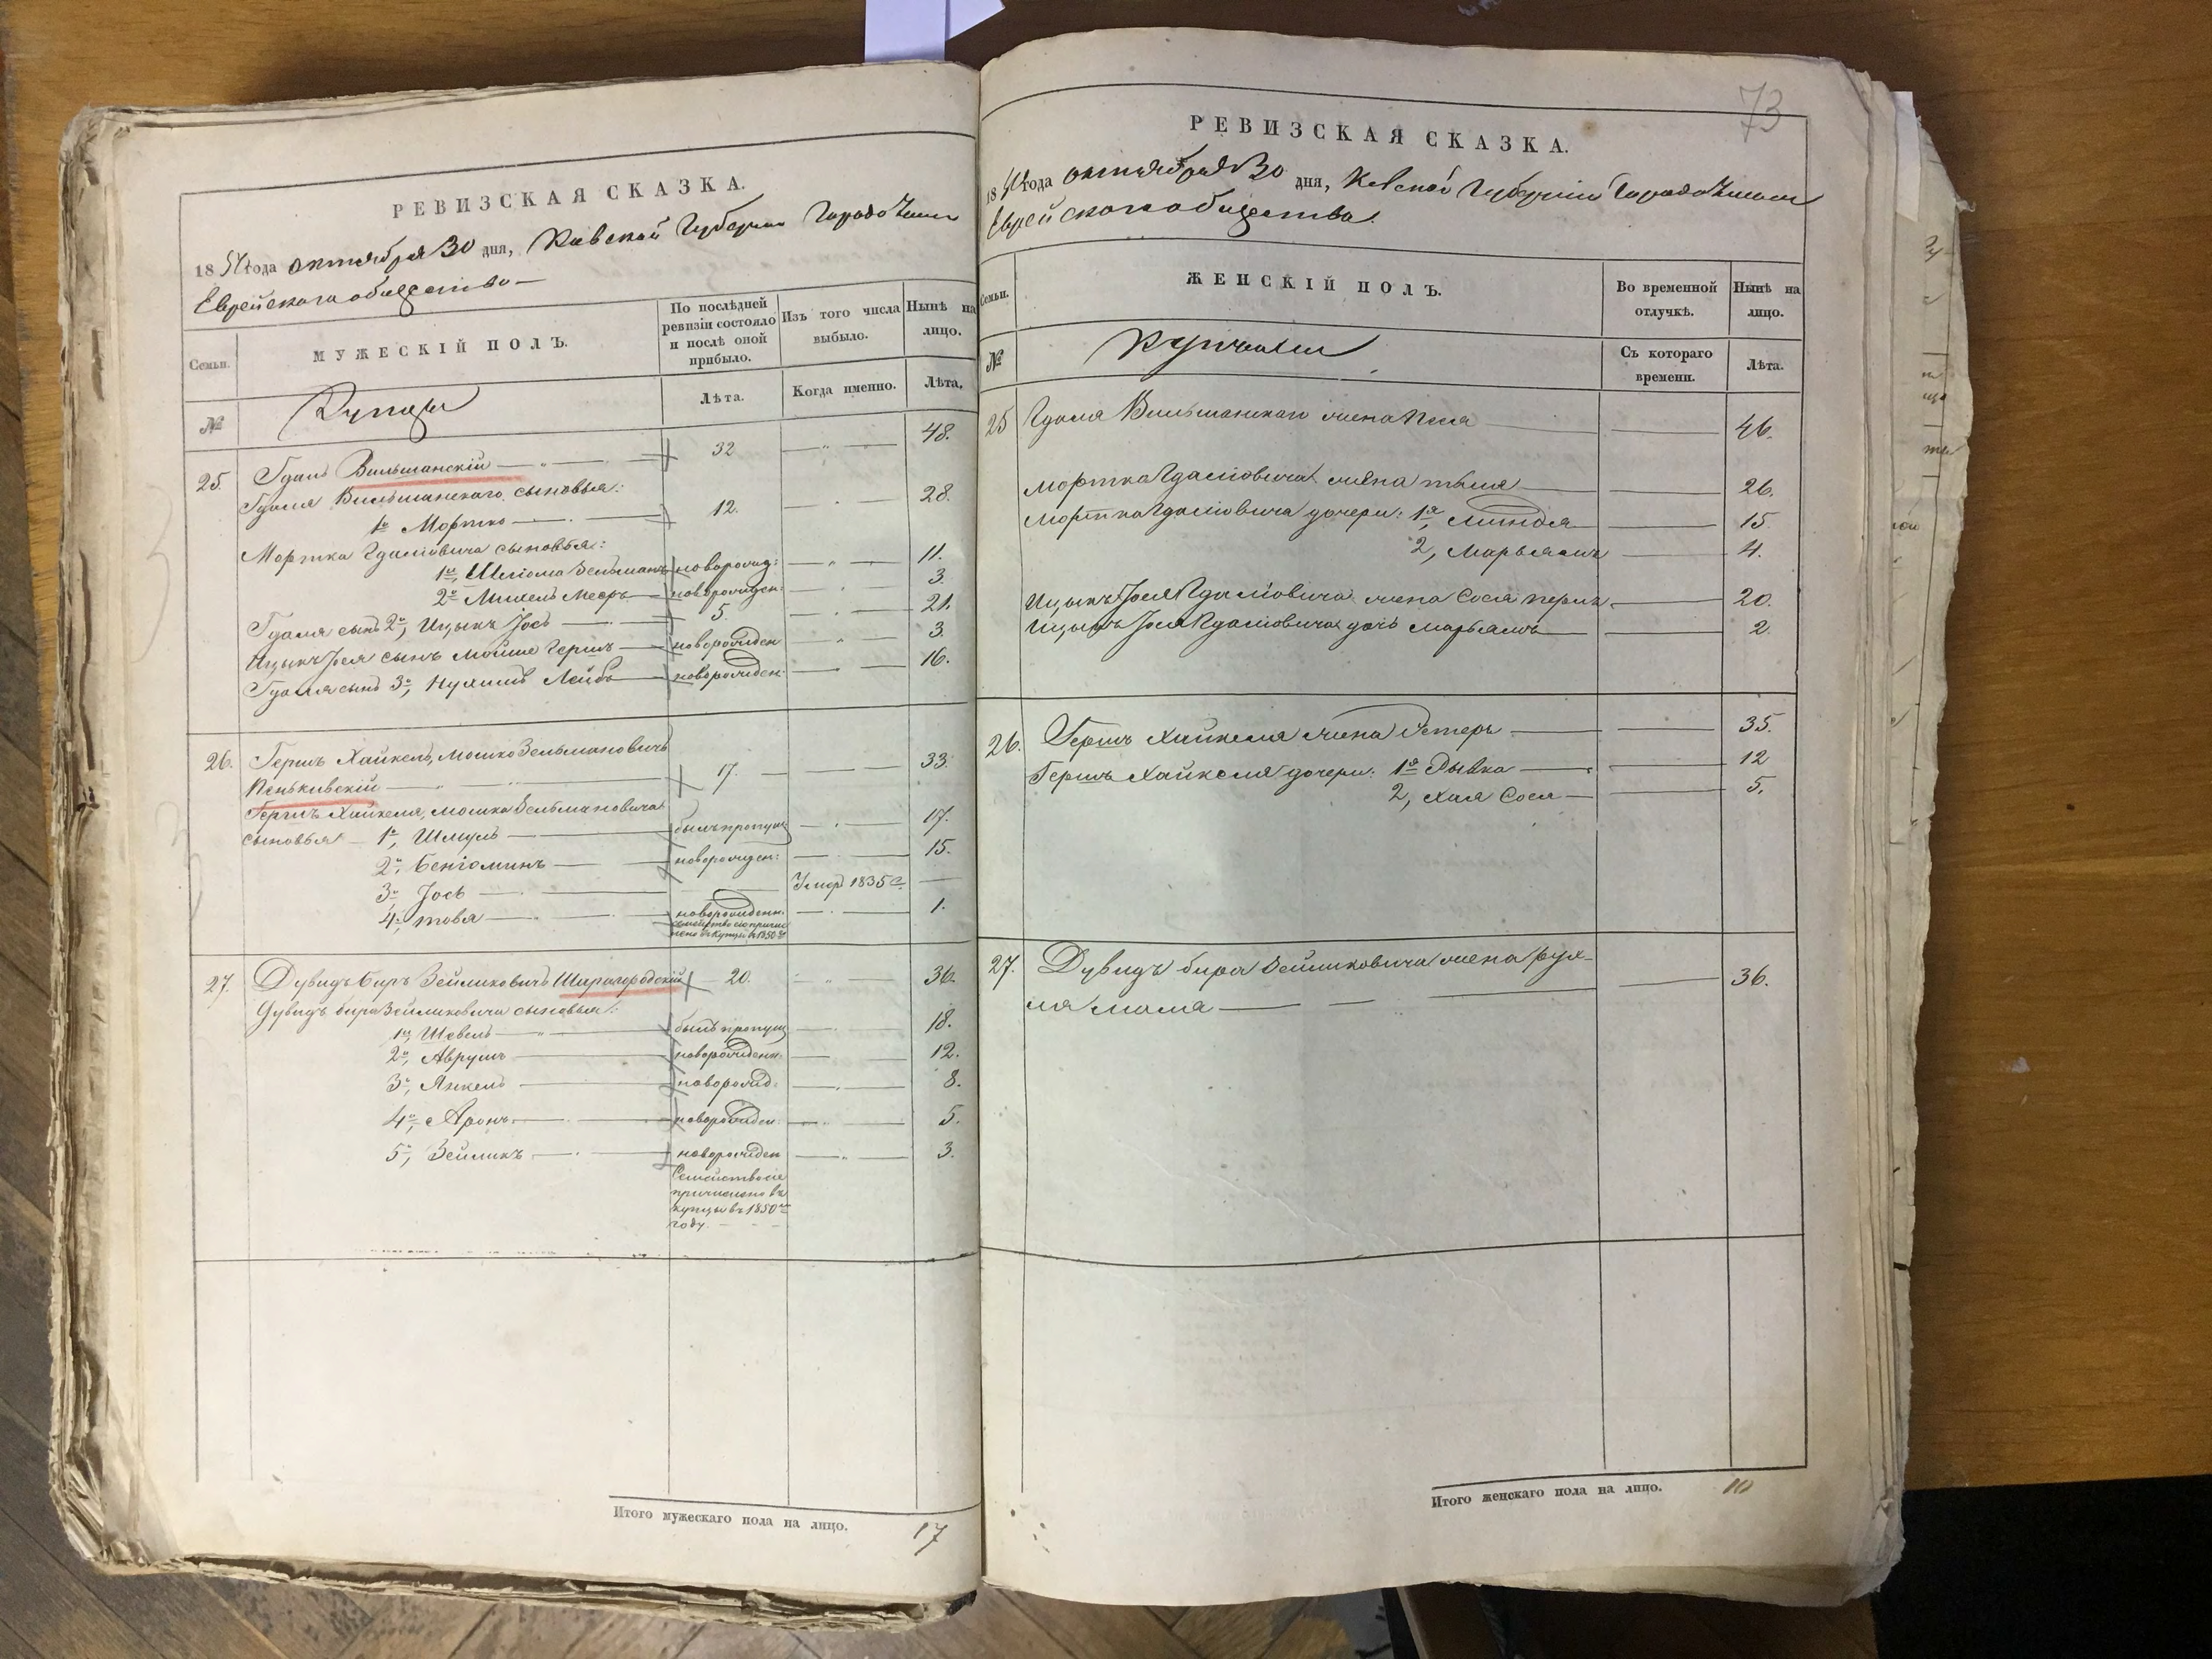 РЕВИЗСКАЯ СКАЗКА.
18 года октября 30 дня, Киевской Губернии Города
Еврейскаго общества
Семьи.
МУЖЕСКІЙ ПОЛЪ.
По послѣдней ревизіи состояло и послѣ оной прибыло.
Изъ того числа выбыло.
Нынѣ на лицо.
№
Купцы
Лѣта.
Когда именно.
Лѣта.
25. Гдаль Вильшанскій 32 48.
Гдаля Вильшанскаго сыновья:
1й Мортко 12. 28.
Мортка Гдаліовича сыновья:
1й, Шліома Зельманъ новорожд: 11.
2й Михель Мееръ новорожден: 3.
Гдаля сынъ 2й, Ицыкъ Іось 5. 21.
Ицыкъ Іося сынъ Мойше Гершъ новорожден 3.
Гдаля сынъ 3й, Нухимъ Лейба новорожден: 16.
26. Гершъ Хайкель, Мошко Зельмановичъ
Пеньківскій 17. 33.
Гершъ Хайкеля, Мошка Зельмановича
сыновья 1й, Шмуль былъ пропущ 17.
2й, Беніоминъ новорожден: 15.
3й Іось Умер 1835 г.
4й, Товія новорожденн. 1.
семейство сіе причислено въ купцы въ 1850 г
27. Дувидъ Беръ Зейликовичъ Шаргородскій 20. 36.
Дувидъ Бера Зейликовича сыновья:
1й, Шовель былъ пропущ 18.
2й, Аврумъ новорожденн. 12.
3й, Янкель новорожд: 8.
4й, Аронъ новорожден. 5.
5й, Зейликъ новорожден 3.
Семейство сіе
причислено въ
купцы въ 1850м
году.
Итого мужескаго пола на лицо. 17
73
РЕВИЗСКАЯ СКАЗКА.
18 года октября 30 дня, Киевской Губерніи Города
Еврейскаго общества.
Семьи.
ЖЕНСКІЙ ПОЛЪ.
Во временной отлучкѣ.
Нынѣ на лицо.
№
Купчихи
Съ котораго времени.
Лѣта.
25 Гдаля Вильшанскаго жена Песя 46.
Мортка Гдаліовича жена 26.
Мортка Гдаліовича дочери: 1я, Миндля 15.
2, Марьямъ 4.
Ицыкъ Іося Гдаліовича жена Сося Перля 20.
Ицыкъ Іося Гдаліовича дочь Марьямъ 2.
26. Гершъ Хайкеля жена Эстеръ 35.
Гершъ Хайкеля дочери: 1я Рывка 12
2, Хая Сося 5.
27. Дувидъ Бера Зейликовича жена Рух-
ля Маля 36.
Итого женскаго пола на лицо. 10